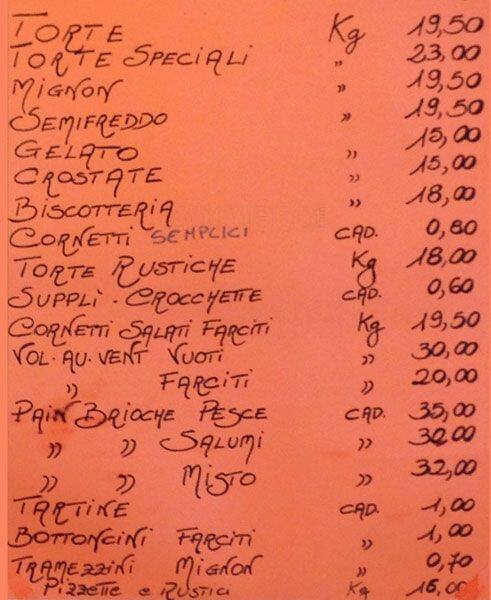 TORTE Kg 19,50
TORTE SPECIALI " 23,00
MIGNON " 19,50
SEMIFREDDO " 19,50
GELATO " 15,00
CROSTATE " 15,00
BISCOTTERIA " 18,00
CORNETTI SEMPLICI CAD. 0,80
TORTE RUSTICHE Kg 18,00
SUPPLÌ - CROCCHETTE CAD. 0,60
CORNETTI SALATI FARCITI Kg 19,50
VOL. AU. VENT VUOTI " 30,00
" FARCITI " 20,00
PAIN BRIOCHE PESCE CAD. 35,00
" " SALUMI " 30,00
" " MISTO " 32,00
TARTINE CAD. 1,00
BOTTONCINI FARCITI " 1,00
TRAMEZZINI MIGNON " 0,70
PIZZETTE e RUSTICI Kg 16,00